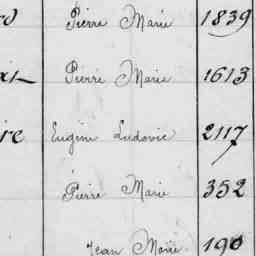 Pierre Marie 1839
Pierre Marie 1613
Eugène Ludovic 2117
Pierre Marie 352
Jean Marie 190